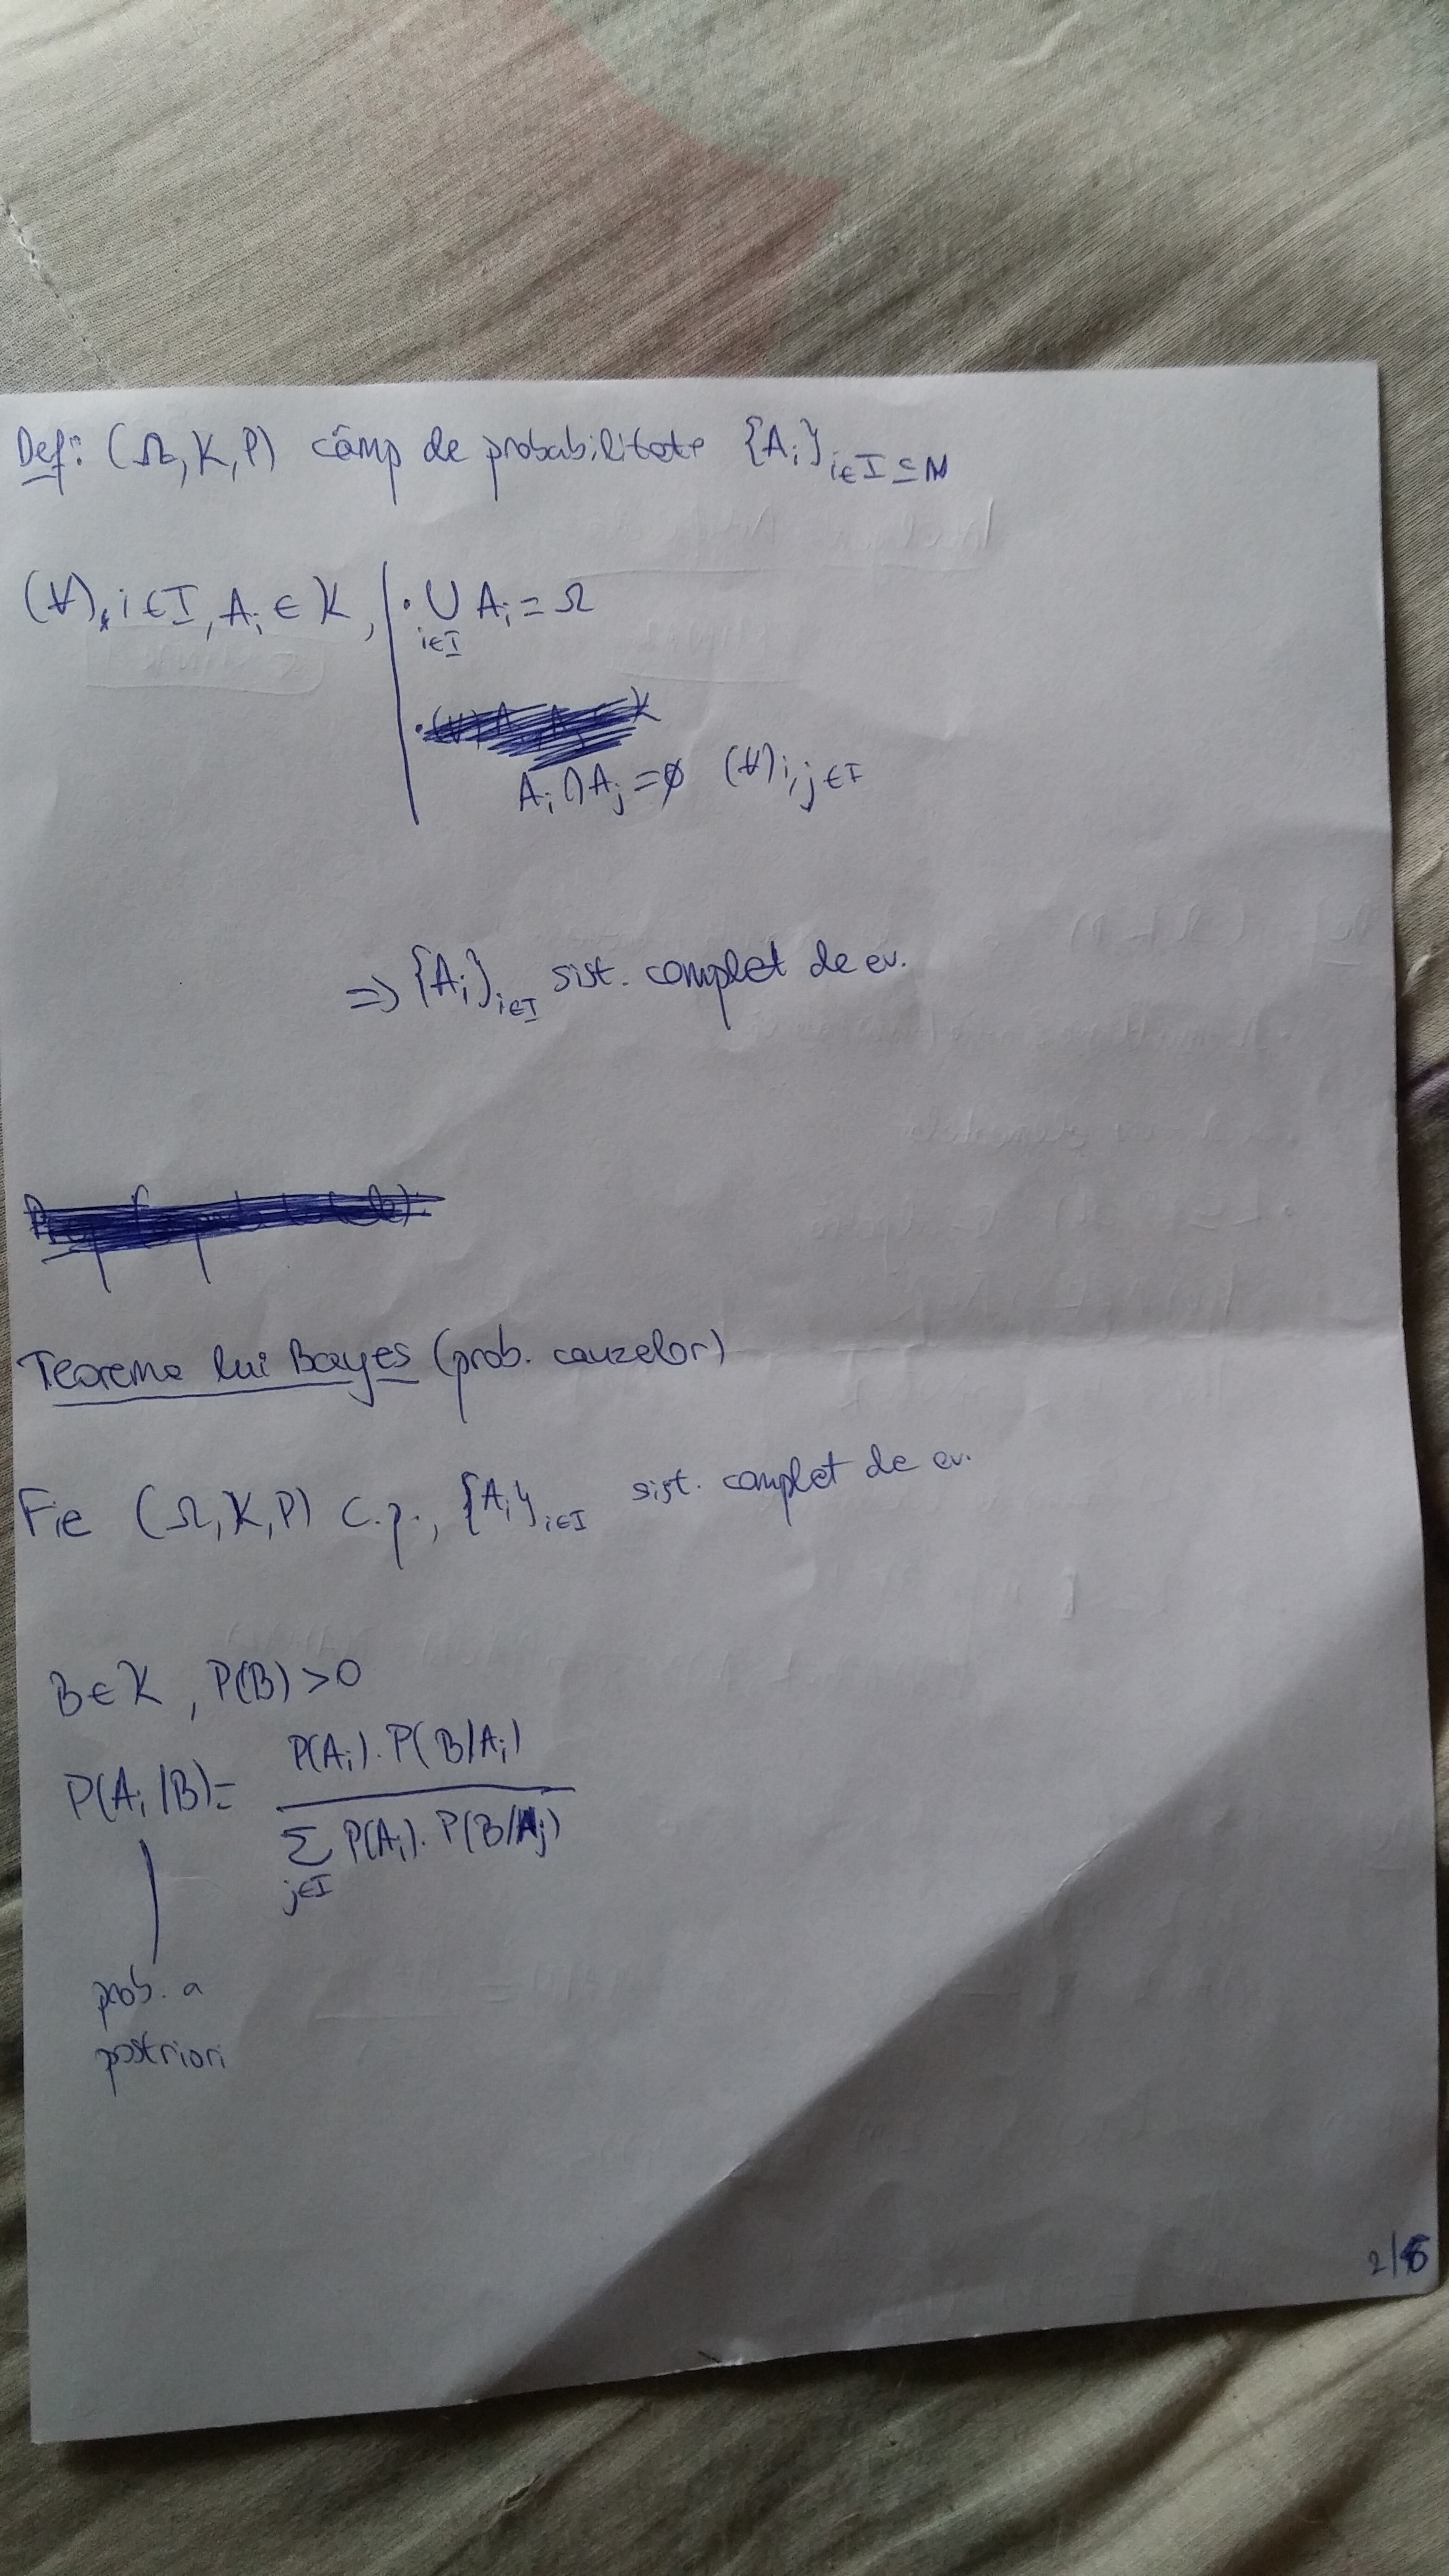 Def: (Ω, K, P) câmp de probabilitate {Ai}i∈I⊆N
(∀) i∈I, Ai ∈ K, | • ⋃i∈I Ai = Ω
• Ai ∩ Aj = ∅ (∀) i,j ∈ I
=> {Ai}i∈I sist. complet de ev.
Teorema lui Bayes (prob. cauzelor)
Fie (Ω, K, P) c.p., {Ai}i∈I sist. complet de ev.
B ∈ K, P(B) > 0
P(Ai) · P(B/Ai)
P(Ai/B) =
∑j∈I P(Ai) · P(B/Aj)
prob. a
postriori